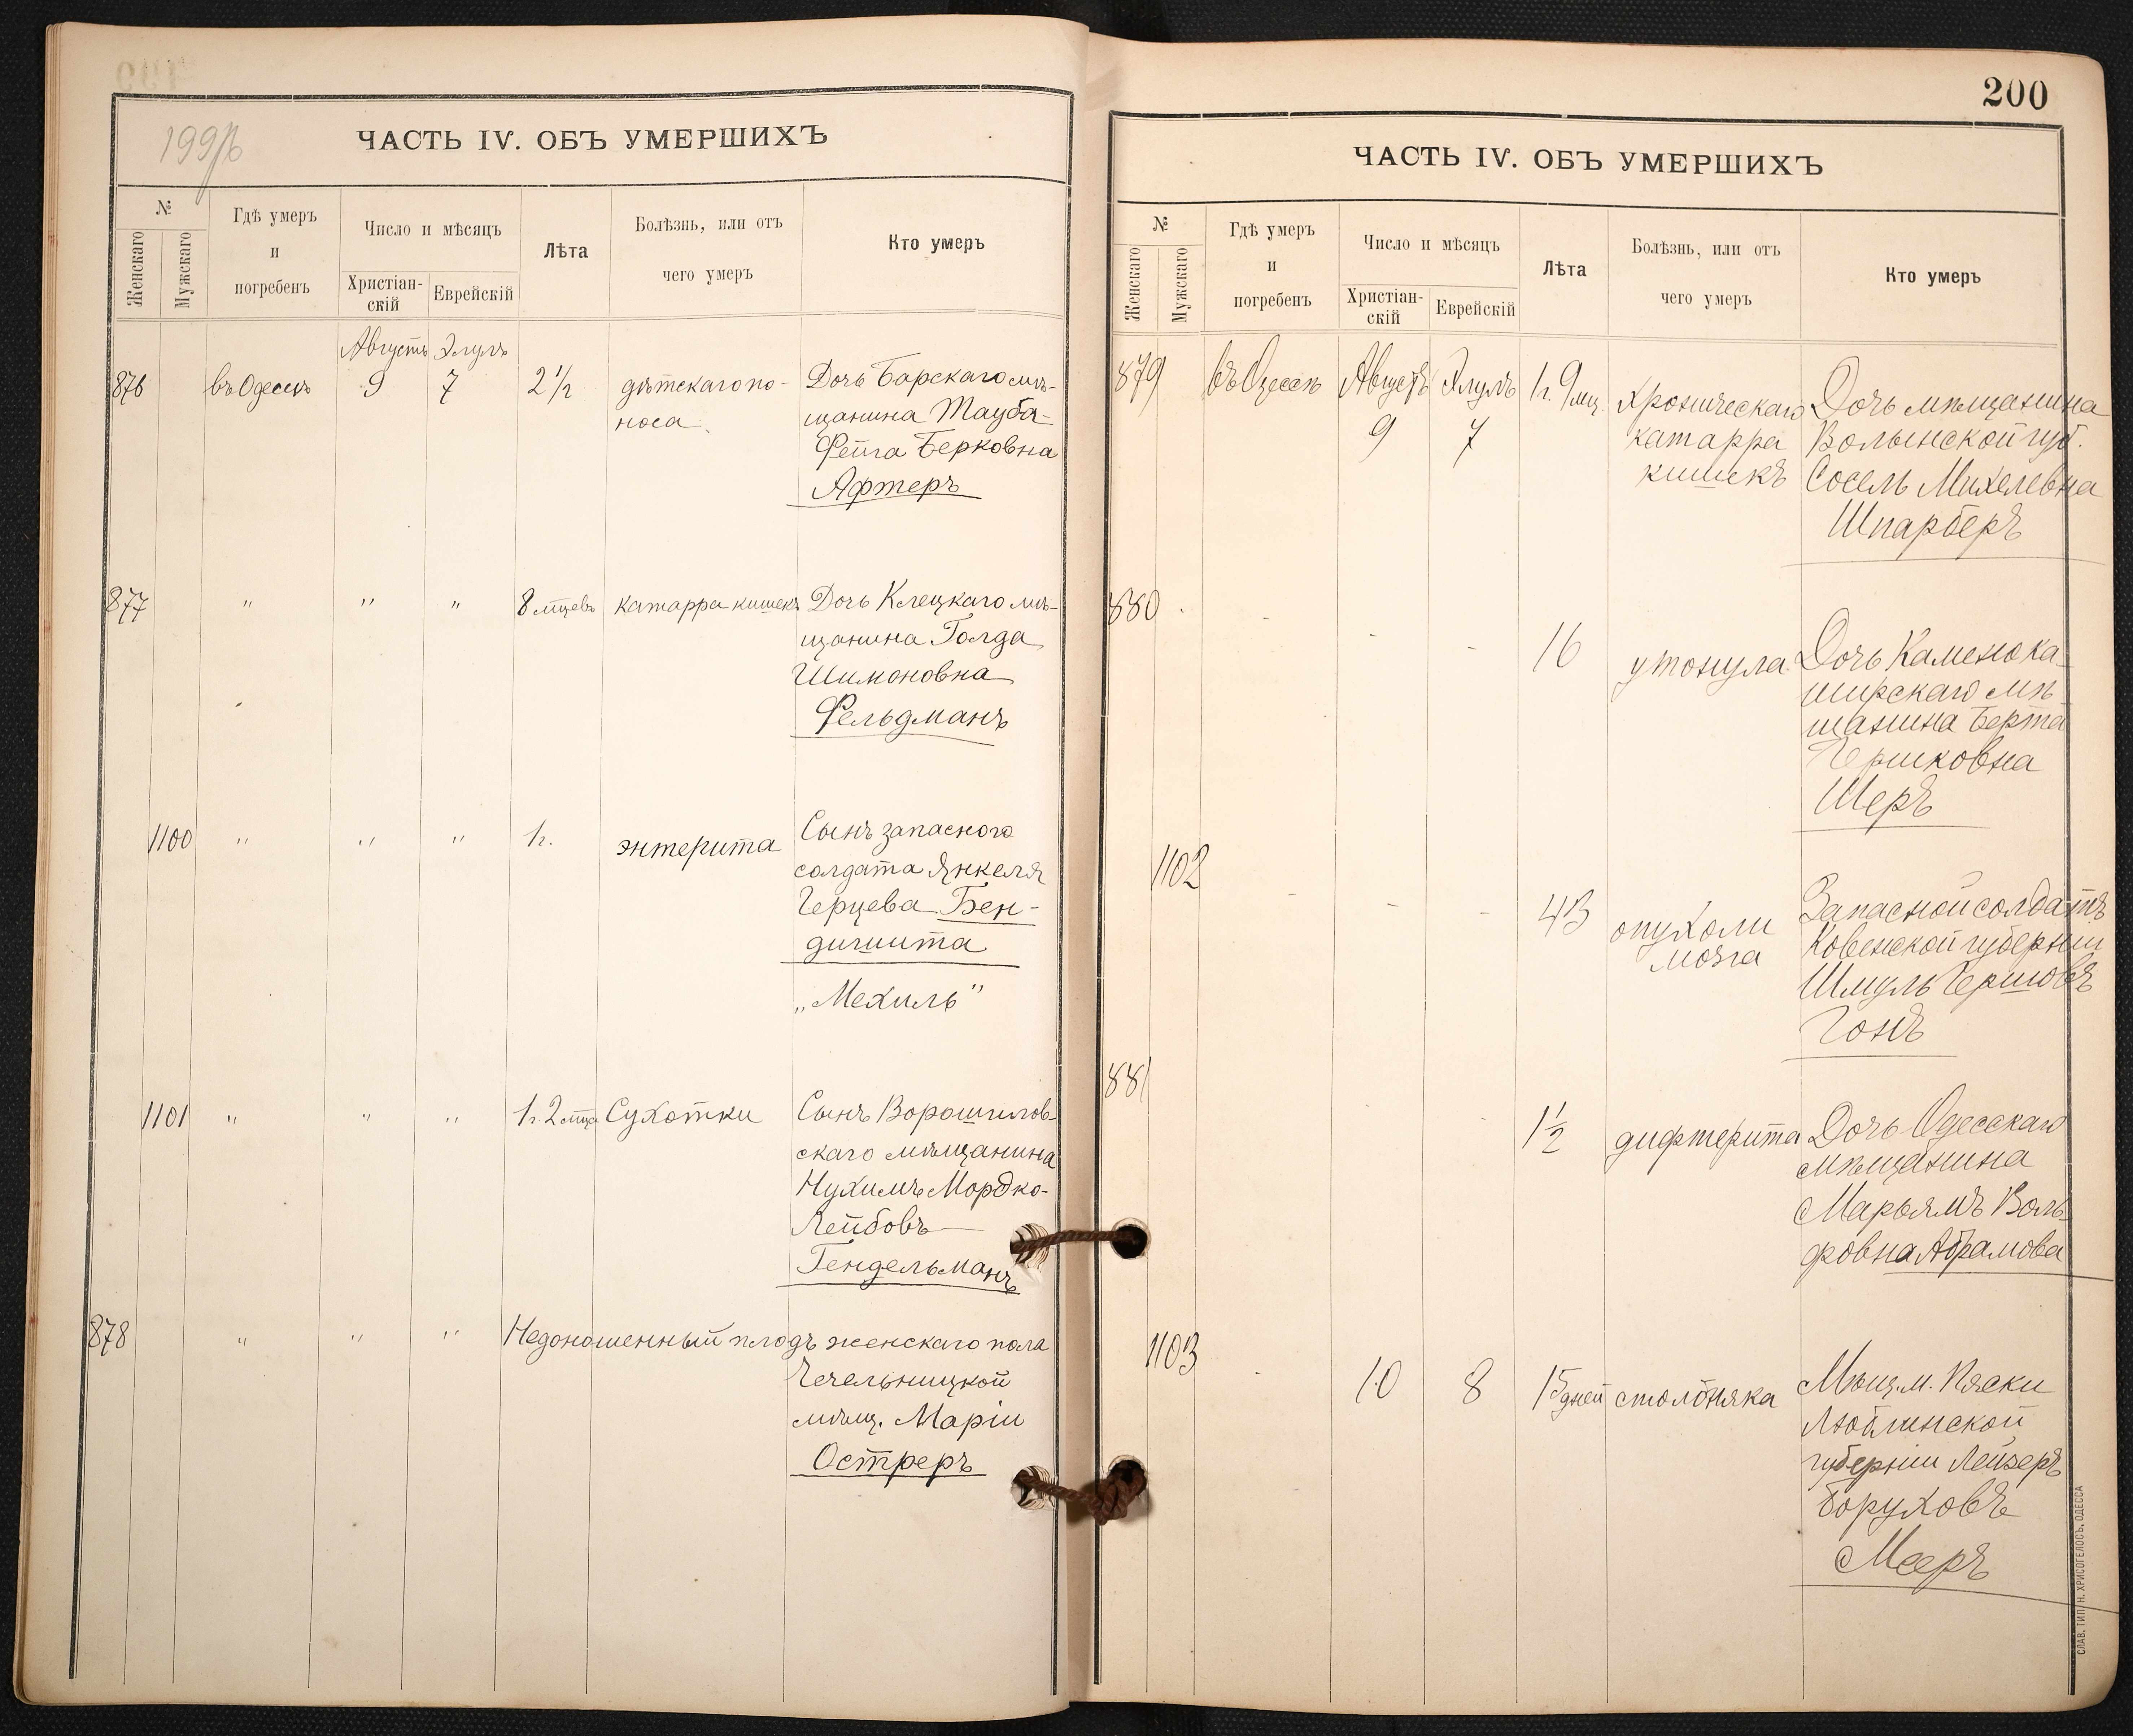 199/б
ЧАСТЬ IV. ОБЪ УМЕРШИХЪ
№
Женскаго
Мужскаго
Гдѣ умеръ
и
погребенъ
Число и мѣсяцъ
Христіан-
скій
Еврейскій
Лѣта
Болѣзнь, или отъ
чего умеръ
Кто умеръ
Августъ Элулъ
876 въ Одессѣ 9 7 2 1/2 дѣтскаго по- Дочь Барскаго мѣ-
носа щанина Тауба-
Фейга Берковна
Афтеръ
877 " " " 8 мцевъ катарра кишекъ Дочь Клецкаго мѣ-
щанина Голда
Шимоновна
Фельдманъ
1100 " " " 1 г. энтерита Сынъ запасного
солдата Янкеля
Герцева Бен-
дичшита
„Мехиль"
1101 " " " 1 г. 2 мца Сухотки Сынъ Ворошилов-
скаго мѣщанина
Нухимъ Мордко-
Лейбовъ
Гендельманъ
878 " " " Недоношенный плодъ женскаго пола
Чечельницкой
мѣщ. Маріи
Остреръ
200
ЧАСТЬ IV. ОБЪ УМЕРШИХЪ
№
Женскаго
Мужскаго
Гдѣ умеръ
и
погребенъ
Число и мѣсяцъ
Христіан-
скій
Еврейскій
Лѣта
Болѣзнь, или отъ
чего умеръ
Кто умеръ
879 въ Одессѣ Августъ Элулъ 1 г. 9 мц. хроническаго Дочь мѣщанина
9 7 катарра Волынской губ.
кишекъ Сосель Михелевна
Шпарберъ
880 - - - 16 утонула Дочь Каменока-
ширскаго мѣ
щанина Берта
Гершковна
Шеръ
1102 - - - 43 опухоли Запасной солдатъ
мозга Ковенской губерніи
Шмуль Гершовъ
Гонъ
881 - - 1 1/2 дифтерита Дочь Одесскаго
мѣщанина
Марьямъ Воль-
фовна Абрамова
1103 - 10 8 15 дней столбняка Мѣщ. м. Пяски
Люблинской
губерніи Лейзеръ
Боруховъ
Мееръ
СЛАВ. ТИП. Н. ХРИСОГЕЛОСЪ, ОДЕССА